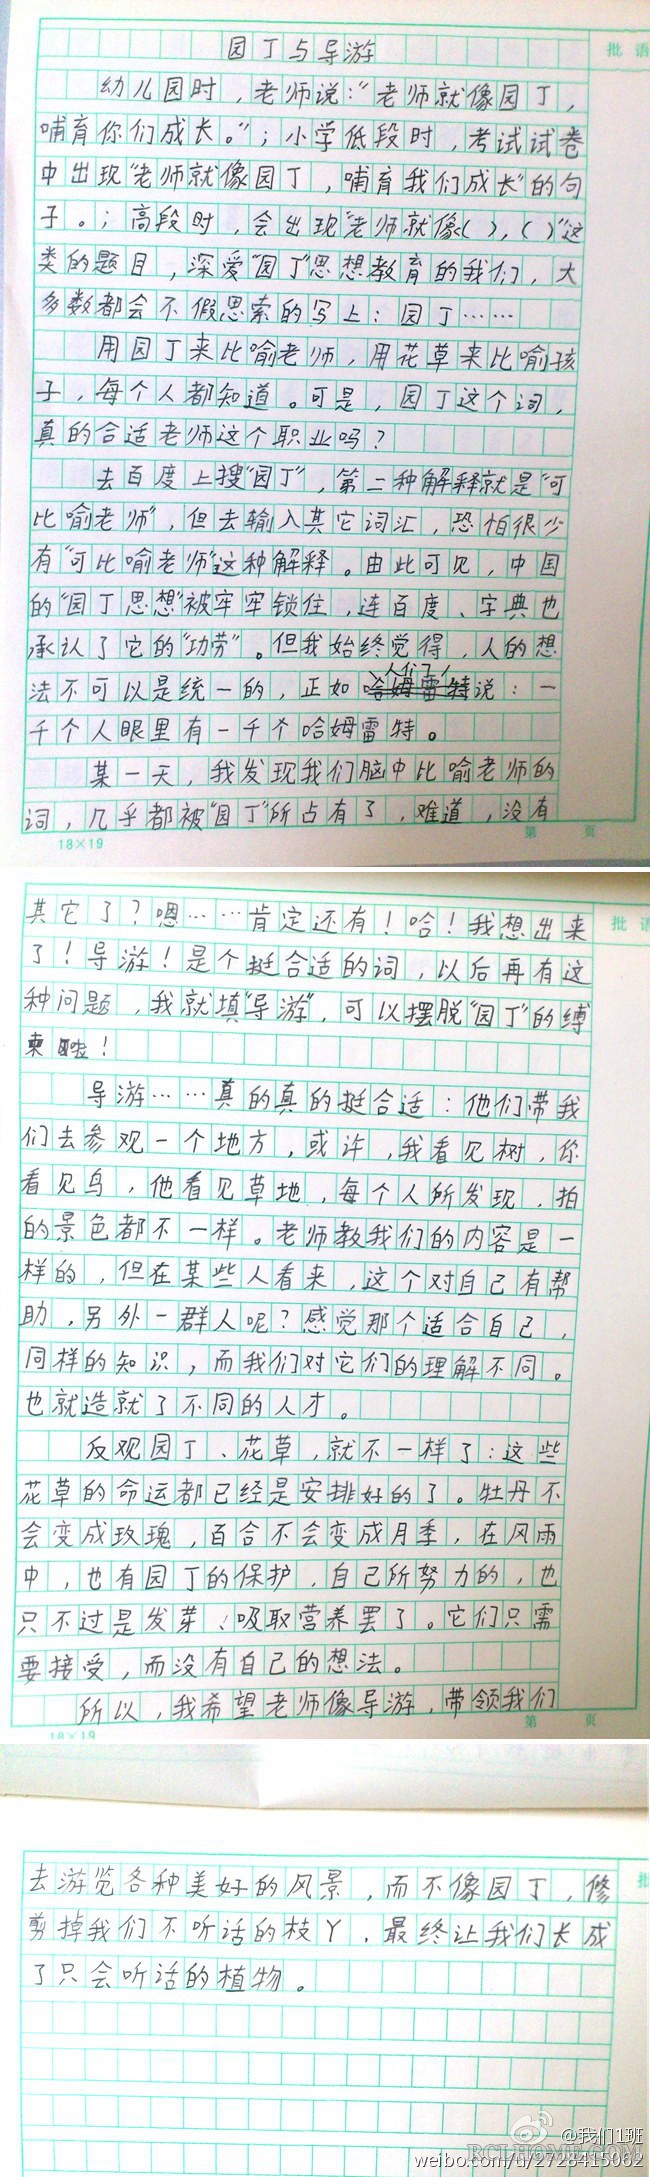 园丁与导游
批语
幼儿园时，老师说：“老师就像园丁，
哺育你们成长。”；小学低段时，考试试卷
中出现“老师就像园丁，哺育我们成长”的句
子。；高段时，会出现“老师就像（ ），（ ）”这
类的题目，深爱“园丁”思想教育的我们，大
多数都会不假思索的写上：园丁……
用园丁来比喻老师，用花草来比喻孩
子，每个人都知道。可是，园丁这个词，
真的合适老师这个职业吗？
去百度上搜“园丁”，第二种解释就是“可
比喻老师”，但去输入其它词汇，恐怕很少
有“可比喻老师”这种解释。由此可见，中国
的“园丁思想”被牢牢锁住，连百度、字典也
承认了它的“功劳”。但我始终觉得，人的想
法不可以是统一的，正如人们说：一
千个人眼里有一千个哈姆雷特。
某一天，我发现我们脑中比喻老师的
词，几乎都被“园丁”所占有了，难道，没有
18×19
第 页
其它了？嗯……肯定还有！哈！我想出来
批语
了！导游！是个挺合适的词，以后再有这
种问题，我就填“导游”，可以摆脱“园丁”的缚
束啦！
导游……真的真的挺合适：他们带我
们去参观一个地方，或许，我看见树，你
看见鸟，他看见草地，每个人所发现、拍
的景色都不一样。老师教我们的内容是一
样的，但在某些人看来，这个对自己有帮
助，另外一群人呢？感觉那个适合自己，
同样的知识，而我们对它们的理解不同。
也就造就了不同的人才。
反观园丁、花草，就不一样了：这些
花草的命运都已经是安排好的了。牡丹不
会变成玫瑰，百合不会变成月季，在风雨
中，也有园丁的保护，自己所努力的，也
只不过是发芽、吸取营养罢了。它们只需
要接受，而没有自己的想法。
所以，我希望老师像导游，带领我们
18×19
第 页
去游览各种美好的风景，而不像园丁，修
批
剪掉我们不听话的枝丫，最终让我们长成
了只会听话的植物。
@我们1班
RCLHOME.COM
weibo.com/u/2728415062